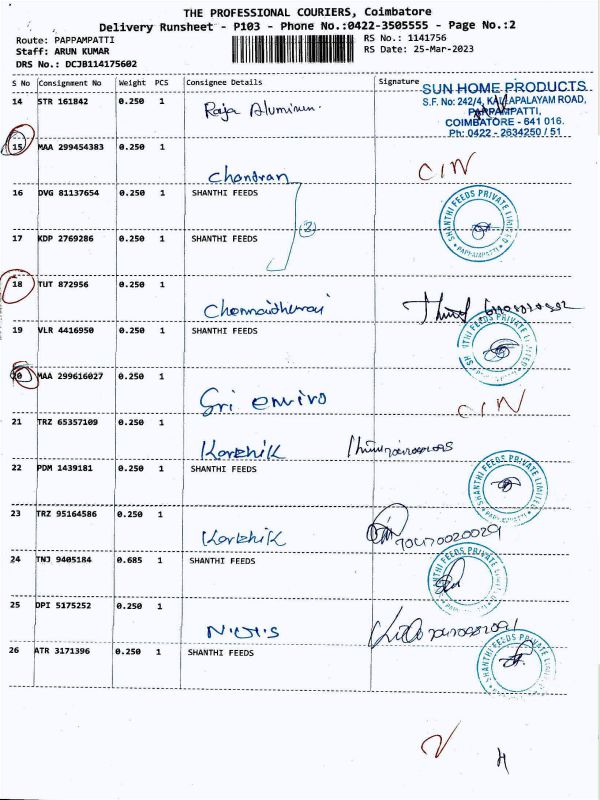 THE PROFESSIONAL COURIERS, Coimbatore
Delivery Runsheet - P103 - Phone No.:0422-3505555 - Page No.:2
Route: PAPPAMPATTI
Staff: ARUN KUMAR
DRS No.: DCJB114175602
RS No.: 1141756
RS Date: 25-Mar-2023
S No Consignment No Weight PCS Consignee Details Signature
SUN HOME PRODUCTS
S.F. No: 242/4, KALLAPALAYAM ROAD,
PAPPAMPATTI,
COIMBATORE - 641 016.
Ph: 0422 - 2634250 / 51
14 STR 161842 0.250 1 Raja Aluminum.
15 MAA 299454383 0.250 1
Chandran CIN
16 DVG 81137654 0.250 1 SHANTHI FEEDS
SHANTHI FEEDS PRIVATE LIMITED
PAPPAMPATTI
(2)
17 KDP 2769286 0.250 1 SHANTHI FEEDS
18 TUT 872956 0.250 1
19 VLR 4416950 0.250 1 SHANTHI FEEDS
20 MAA 299616027 0.250 1
Sri enviro CIN
21 TRZ 65357109 0.250 1
Karthik
22 PDM 1439181 0.250 1 SHANTHI FEEDS
SHANTHI FEEDS PRIVATE LIMITED
PAPPAMPATTI
23 TRZ 95164586 0.250 1
Karthik
24 TNJ 9405184 0.685 1 SHANTHI FEEDS
25 DPI 5175252 0.250 1
26 ATR 3171396 0.250 1 SHANTHI FEEDS
SHANTHI FEEDS PRIVATE LIMITED